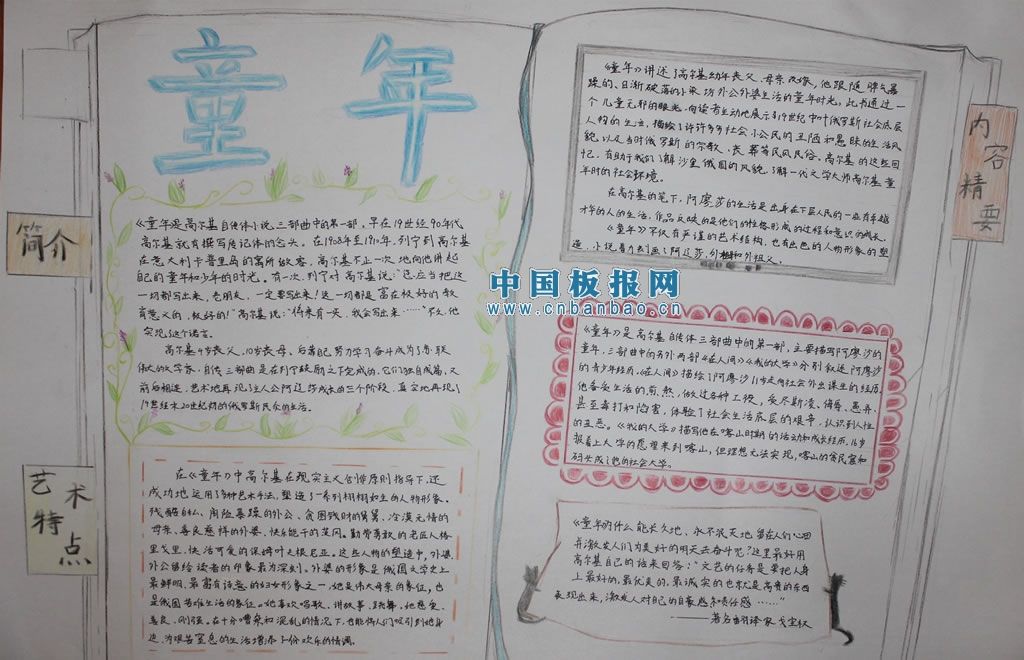 童年
简介
《童年是高尔基自传体小说三部曲中的第一部，早在19世纪90年代
高尔基就有撰写传记体的念头。在1908年至1910年，列宁到高尔基
在意大利卡普里岛的寓所做客，高尔基不止一次地向他讲起
自己的童年和少年的时光。有一次，列宁对高尔基说：“您应当把这
一切都写出来，老朋友，一定要写出来！这一切都是富有极好的教
育意义的，极好的！”高尔基说：“将来有一天，我会写出来……”不久，他
实现了这个诺言。
高尔基4岁丧父，10岁丧母，后靠自己努力学习奋斗成为了苏联
伟大的文学家，自传三部曲是在列宁鼓励之下完成的，它们独自成篇，又
前后相连，艺术地再现了主人公阿廖莎成长的三个阶段，真实地再现了
19世纪末20世纪初的俄罗斯民众的生活。
艺术特点
在《童年》中高尔基在现实主义创作原则指导下，还
成功地运用了多种艺术手法，塑造了一系列栩栩如生的人物形象，
残酷自私、用险暴躁的外公、贪图钱财的舅舅、冷漠无情的
母亲、善良慈祥的外婆、快乐能干的茨冈。勤劳勇敢的老匠人格
里戈里，快活可爱的保姆叶夫根尼亚。这些人物的塑造中，外婆、
外公留给读者的印象最为深刻。外婆的形象是俄国文学史上
最鲜明、最富有诗意的妇女形象之一，她是伟大母亲的象征，也
是俄国苦难生活的象征。她喜欢唱歌、讲故事、跳舞，她慈爱、
善良、刚强。在十分嘈杂和混乱的情况下，也能将人们吸引到她身
边，为艰苦窒息的生活增添了份欢乐的情调。
内容精要
《童年》讲述了高尔基幼年丧父、母亲改嫁，他跟随脾气暴
躁的、日渐破落的小染坊外公外婆生活的童年时光，此书通过一
个儿童无邪的眼光，向读者生动地展示了19世纪中叶俄罗斯社会底层
人物的生活，描绘了许许多多社会小公民的丑陋和愚昧的生活风
貌，以及当时俄罗斯的宗教、丧葬等民风民俗。高尔基的这些回
忆，有助于我们了解沙皇俄国的风貌，了解一代文学大师高尔基童
年时的社会环境。
在高尔基的笔下，阿廖莎的生活是出身在下层人民的一些有卓越
才华的人的生活，作品反映的是他们的性格形成的过程和意识的成长。
《童年》不仅有严谨的艺术结构，也有出色的人物形象的塑
造，小说着力刻画了阿辽莎、外祖和外祖父。
中国板报网
www.cnbanbao.cn
《童年》是高尔基自传体三部曲中的第一部，主要描写阿廖沙的
童年，三部曲中的另外两部《在人间》《我的大学》分别叙述阿廖沙
的青少年经历。《在人间》描绘了阿廖沙11岁走向社会外出谋生的经历
他备受生活的煎熬，做过各种工役，受尽斯凌、侮辱、愚弄、
甚至毒打和陷害，体验了社会生活底层的艰辛，认识到人性
的丑恶。《我的大学》描写他在喀山时期的活动和成长经历，16岁
报着上大学的愿望来到喀山，但理想无法实现，喀山的贫民窟和
码头成了他的社会大学。
《童年为什么能长久地、永不泯灭地留在人们心田
并激发人们为美好的明天去奋斗呢？这里最好用
高尔基自己的话来回答：“文艺的任务是要把人身
上最好的、最优美的、最诚实的也就是高贵的东西
表现出来，激发人对自己的自豪感和责任感……”
——著名翻译家 戈宝权